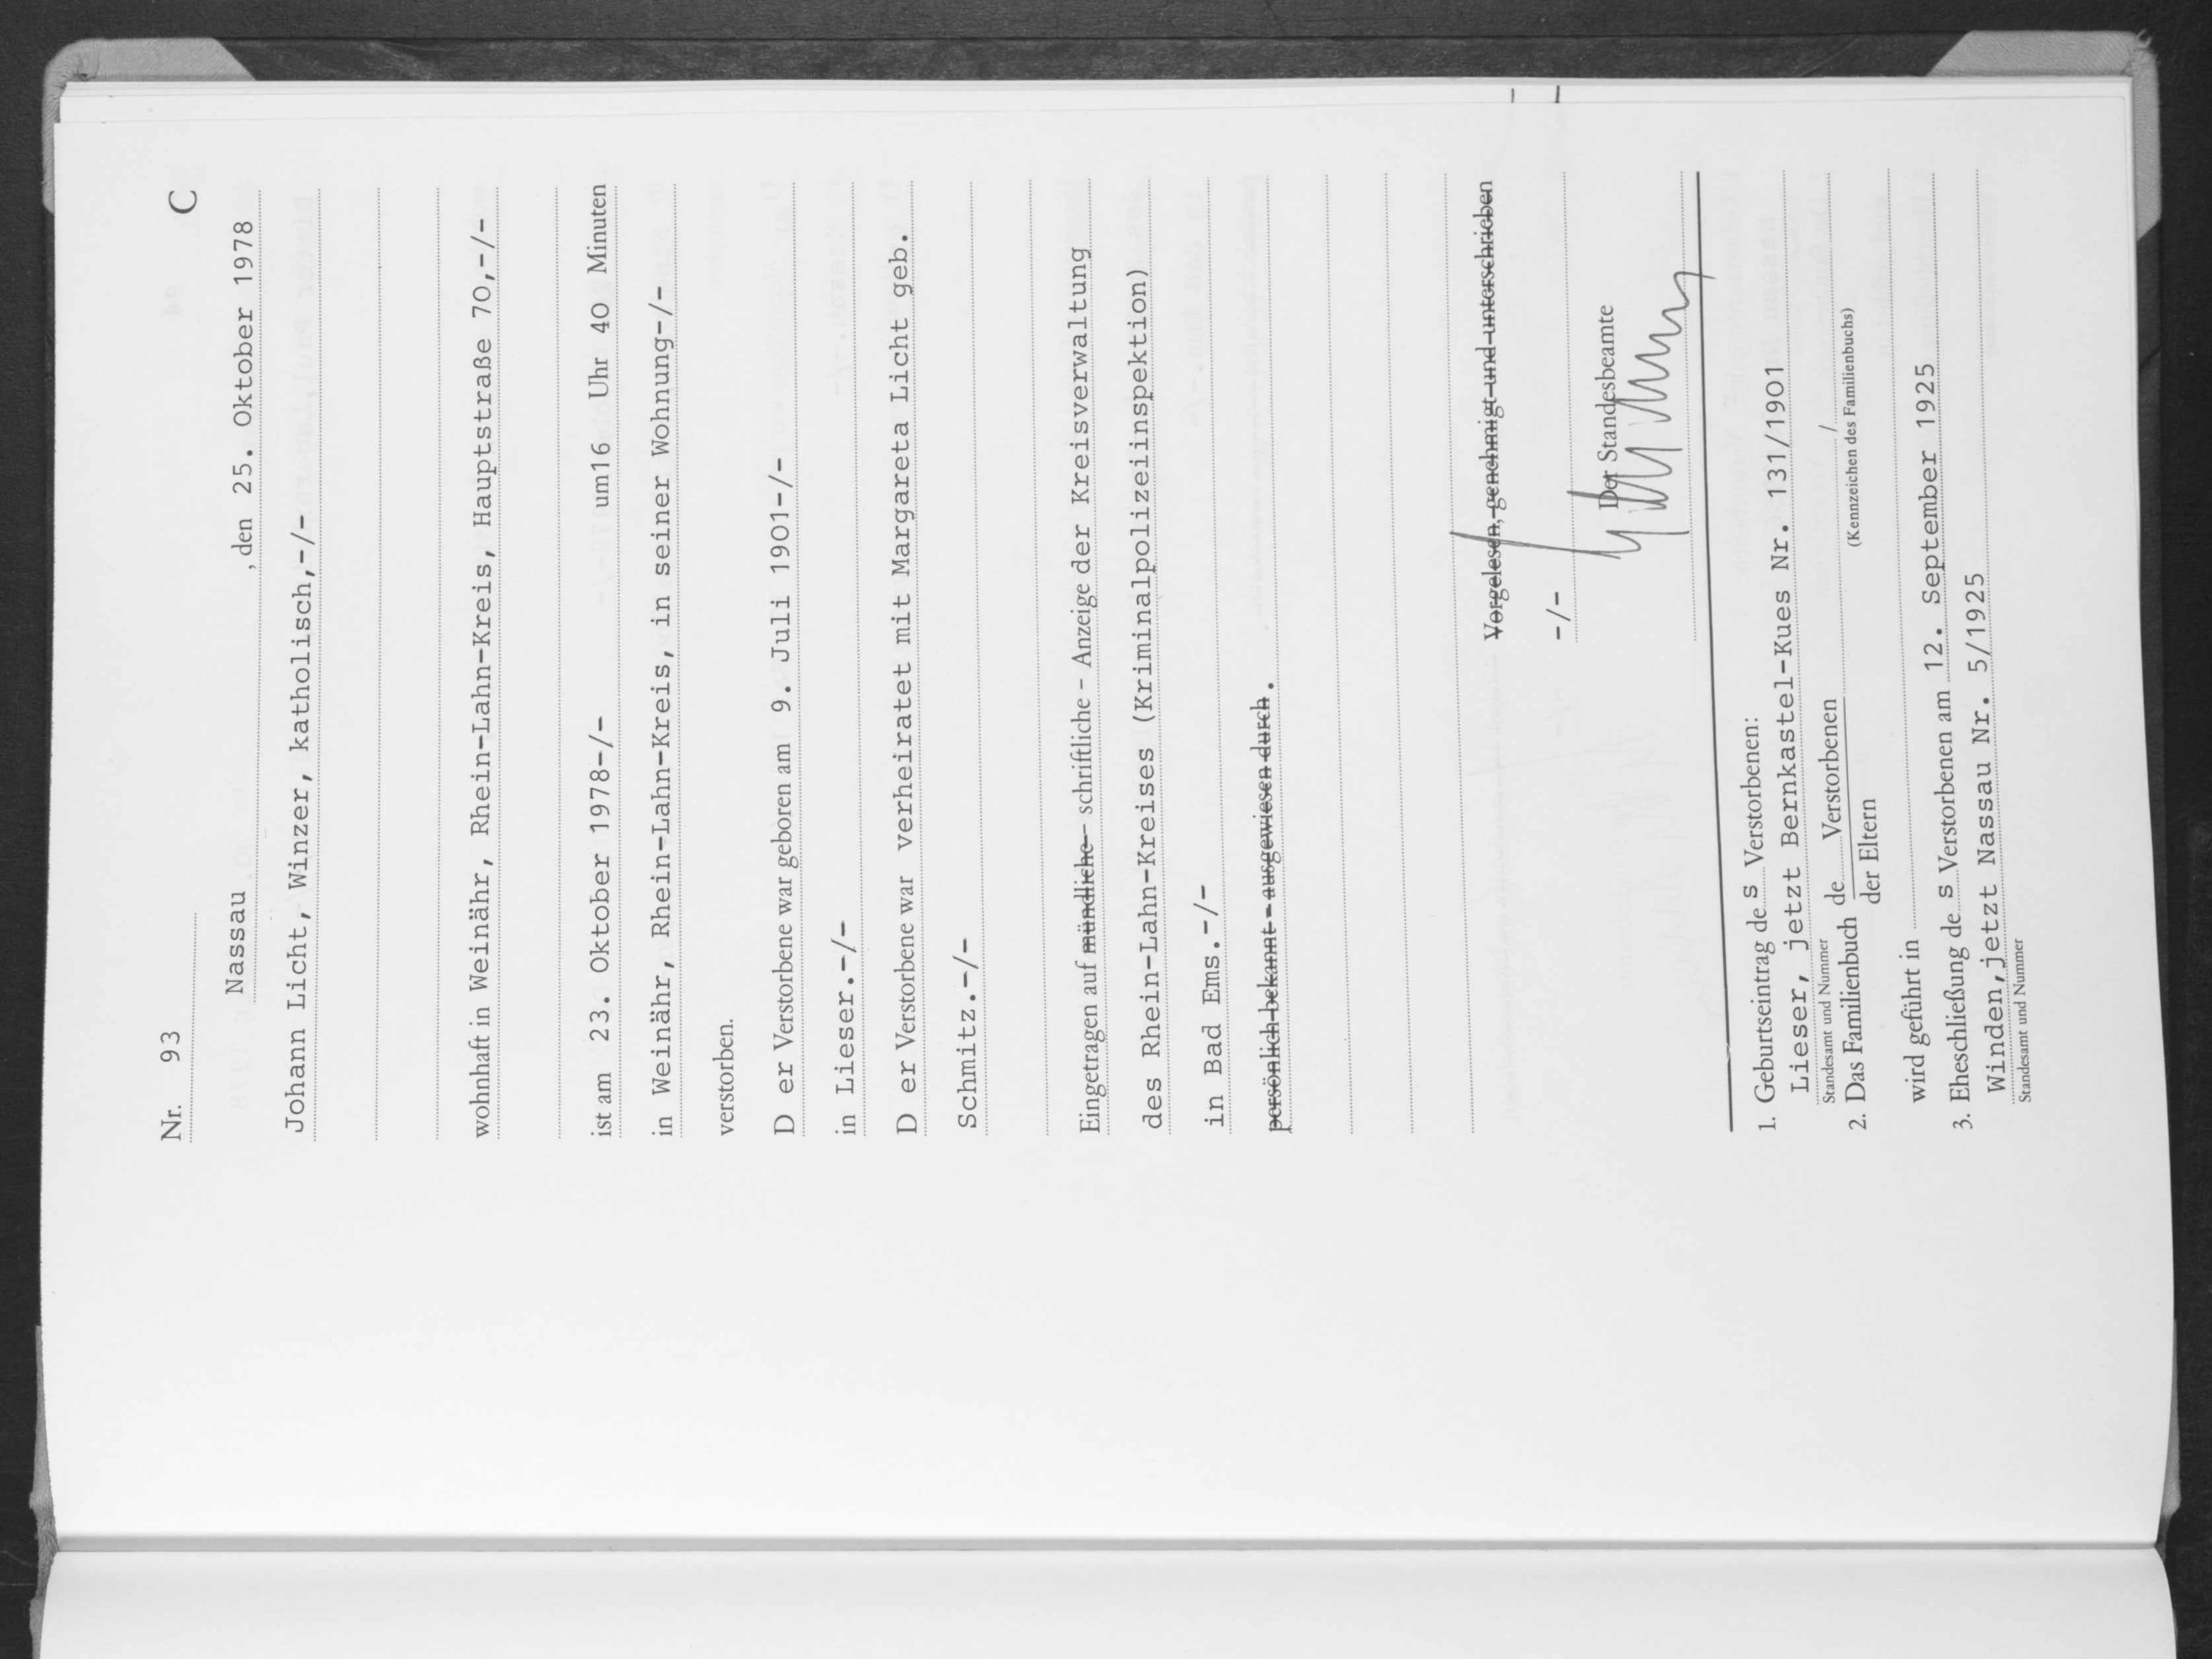 Nr. 93 C
Nassau , den 25. Oktober 1978
Johann Licht, Winzer, katholisch,-/-
wohnhaft in Weinähr, Rhein-Lahn-Kreis, Hauptstraße 70,-/-
ist am 23. Oktober 1978-/- um16 Uhr 40 Minuten
in Weinähr, Rhein-Lahn-Kreis, in seiner Wohnung-/-
verstorben.
D er Verstorbene war geboren am 9. Juli 1901-/-
in Lieser.-/-
D er Verstorbene war verheiratet mit Margareta Licht geb.
Schmitz.-/-
Eingetragen auf mündliche - schriftliche - Anzeige der Kreisverwaltung
des Rhein-Lahn-Kreises (Kriminalpolizeiinspektion)
in Bad Ems.-/-
persönlich bekannt - ausgewiesen durch.
Vorgelesen, genehmigt und unterschrieben
-/-
Der Standesbeamte
1. Geburtseintrag de s Verstorbenen:
Lieser, jetzt Bernkastel-Kues Nr. 131/1901
Standesamt und Nummer
2. Das Familienbuch de Verstorbenen /
der Eltern (Kennzeichen des Familienbuchs)
wird geführt in
3. Eheschließung de s Verstorbenen am 12. September 1925
Winden,jetzt Nassau Nr. 5/1925
Standesamt und Nummer